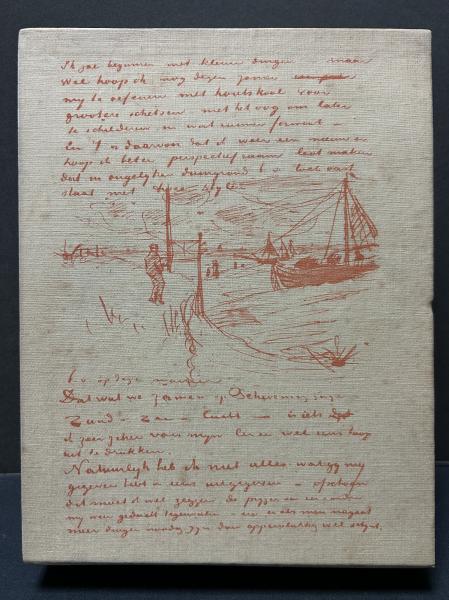 Ik zal beginnen met kleine dingen maar
wel hoop ik nog dezen zomer
my te oefenen met houtskool voor
grootere schetsen met het oog om later
te schilderen in wat ruimer formaat –
En 't is daarvoor dat ik weer een nieuw en
hoop ik beter perspectiefraam laat maken
dat in ongelyken duingrond vast
staat met twee
op deze manier
Dat wat we zamen op Schevening zagen
Zand – Zee – Lucht – is iets
ik zeer zeker van myn leven wel eens hoop
uit te drukken.
Natuurlyk heb ik niet alles wat gy my
gegeven hebt in eens uitgegeven – ofschoon
dat moet ik wel zeggen de pryzen van een en ander
my zwaar tegenvallen – en er als men nagaat
meer dingen noodig zyn dan oppervlakkig wel schynt.